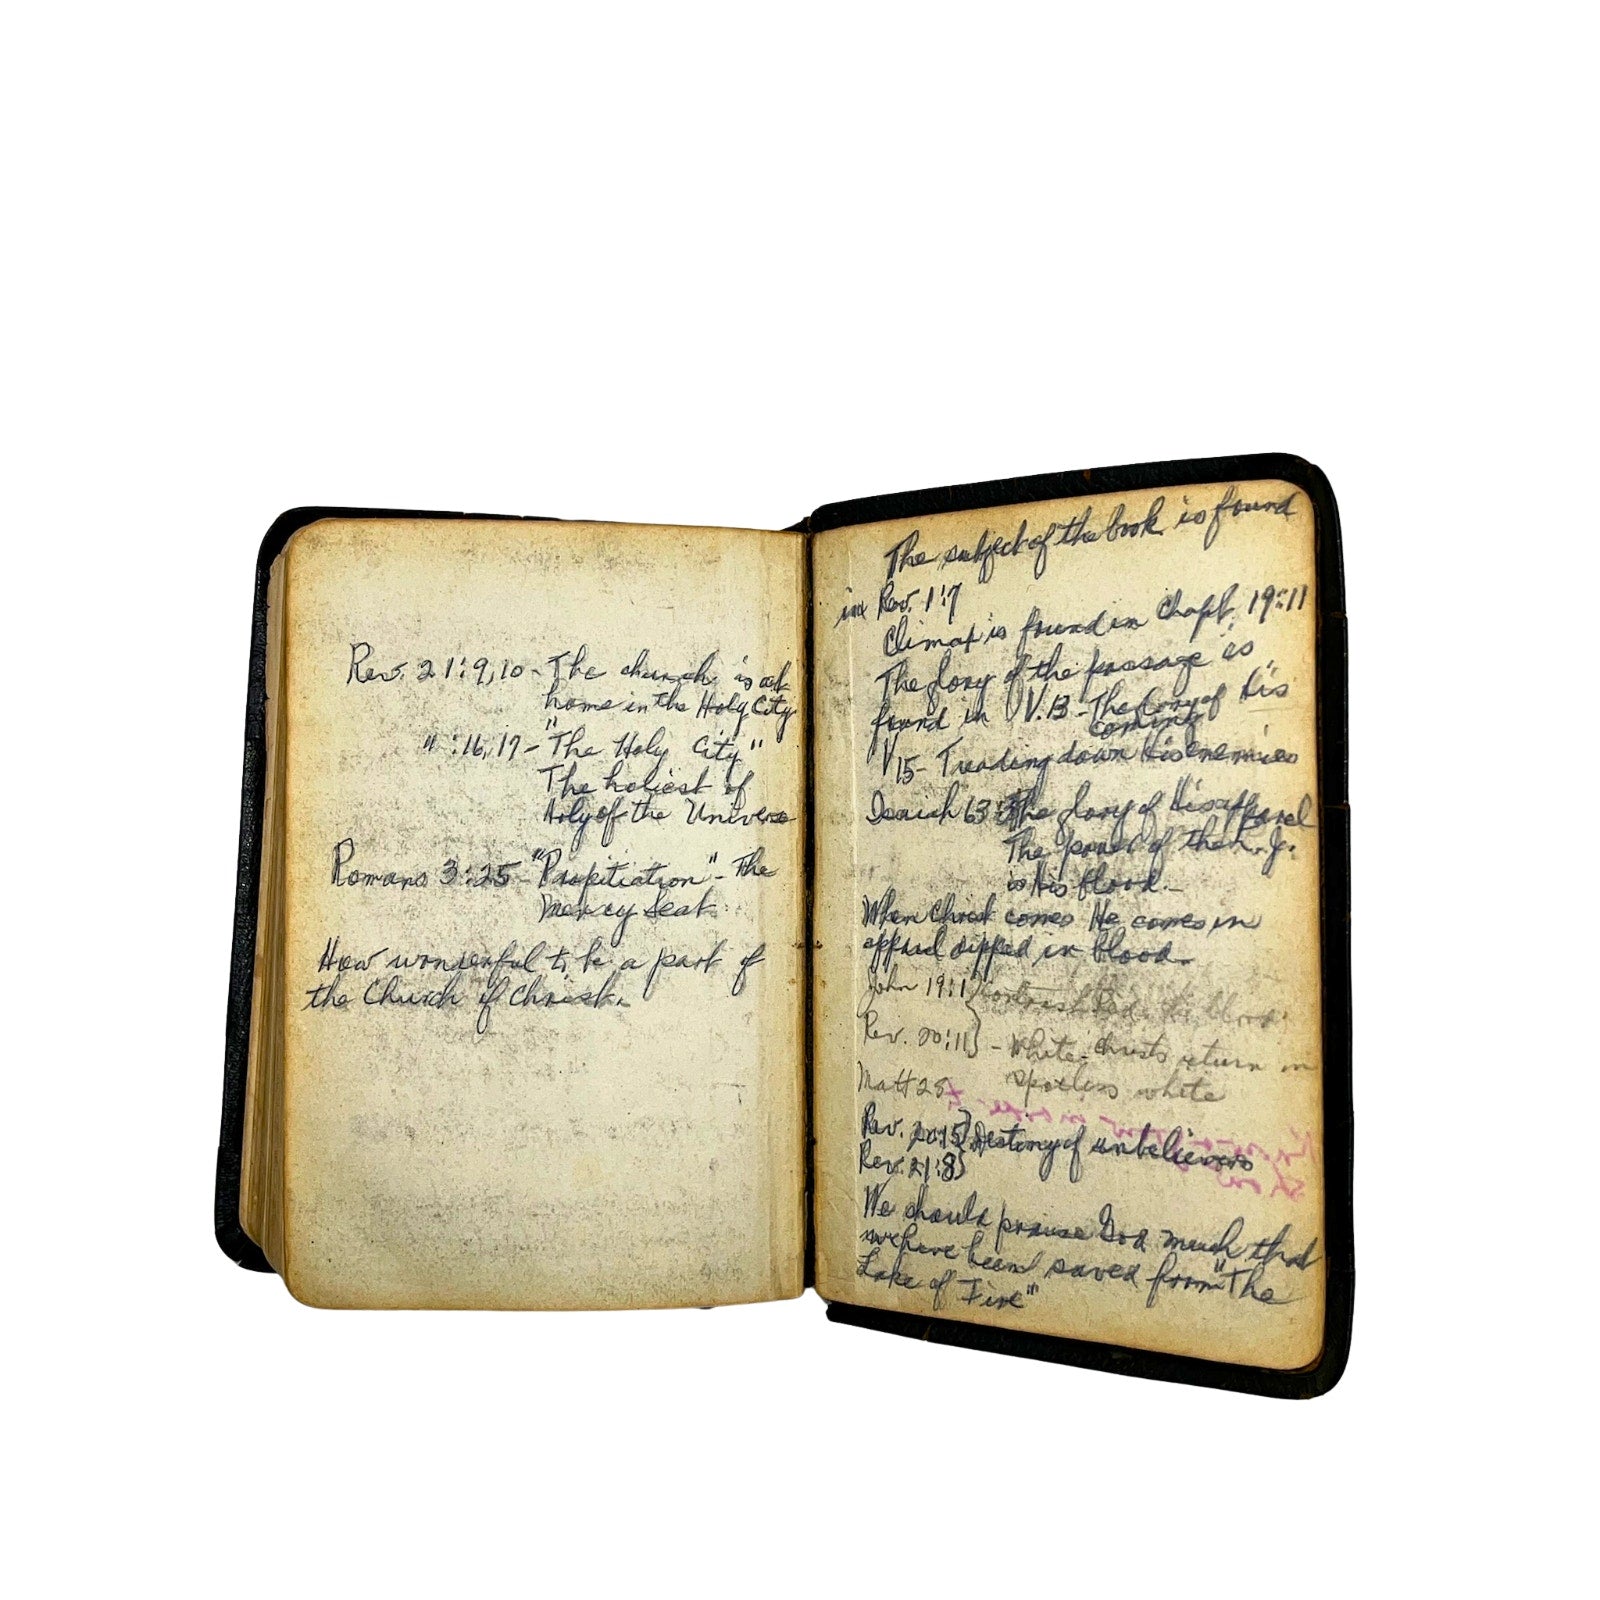 Rev. 21:9,10 - The church is at
home in the Holy City
" :16,17 - "The Holy City"
The holiest of
Holy of the Universe
Romans 3:25 - "Propitiation" - The
Mercy Seat
How wonderful to be a part of
the Church of Christ.
The subject of the book is found
in Rev. 1:7
Climax is found in Chapt. 19:11
The glory of the passage is
found in V.13 - The Glory of His
coming
V15 - Treading down His enemies
Isaiah 63: The glory of His apparel
The power of the
is His blood.
When Christ comes He comes in
apparel dipped in blood.
John 19:1 } Red - the blood
Rev. 20:11 } - White - Christs return in
spotless white
Matt 25
Rev. 20:15 } Destiny of unbelievers
Rev. 21:8 }
We should praise God much that
we have been saved from "The
Lake of Fire"